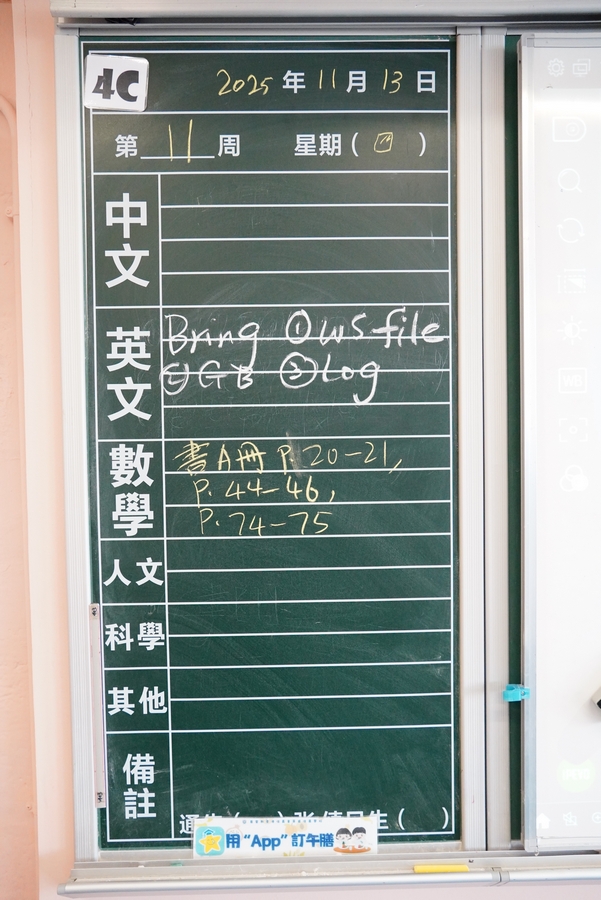 4C
2025年11月13日
第11周 星期(四)
中文
英文
Bring ①WS file
②GB ③Log
數學
書A冊 P.20-21,
P.44-46,
P.74-75
人文
科學
其他
備註
用“App”訂午膳